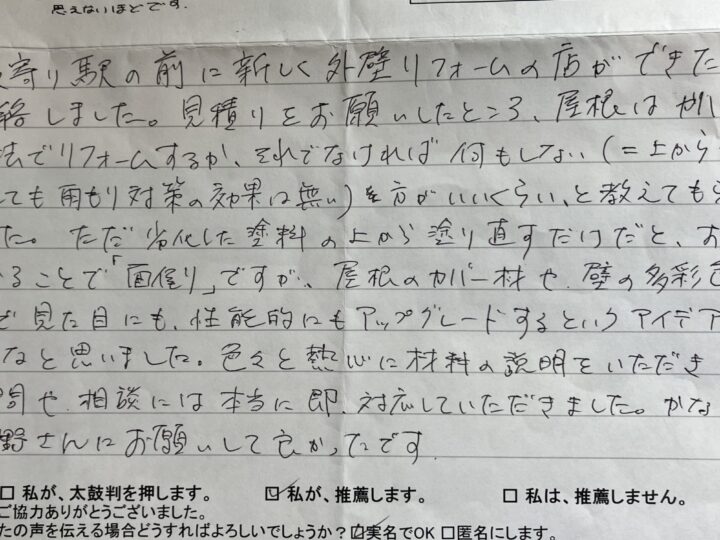 思えないほどです.
寄り駅の前に新しく外壁リフォームの店ができた
絡しました。見積りをお願いしたところ、屋根はカバー
法でリフォームするか、それでなければ何もしない(=上から
ても雨もり対策の効果は無い)を方がいいくらい、と教えてもら
た。ただ劣化した塗料の上から塗り直すだけだと、お
ることで「面倒り」ですが、屋根のカバー材や、壁の多彩色
で見た目にも、性能的にもアップグレードするというアイデア
なと思いました。色々と熱心に材料の説明をいただき
問や、相談には本当に即、対応していただきました。かな
野さんにお願いして良かったです
□ 私が、太鼓判を押します。 ☑ 私が、推薦します。 □ 私は、推薦しません。
ご協力ありがとうございました。
たの声を伝える場合どうすればよろしいでしょうか？ ☑実名でOK □匿名にします。